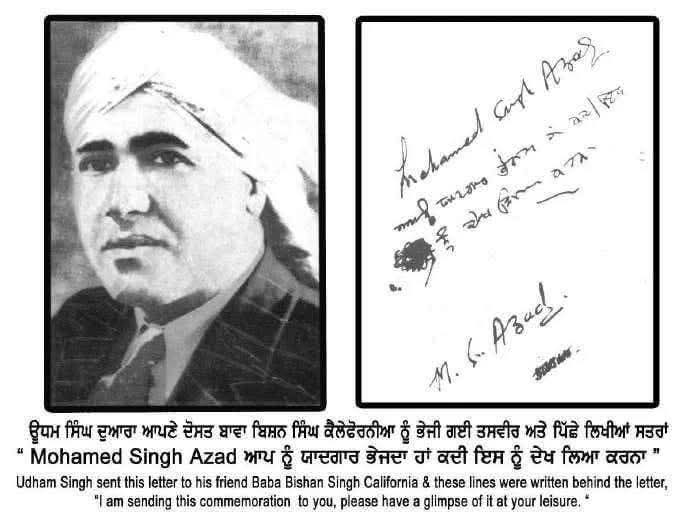 Mohamed Singh Azad
ਆਪ ਨੂੰ ਯਾਦਗਾਰ ਭੇਜਦਾ ਹਾਂ ਕਦੀ ਇਸ
ਨੂੰ ਦੇਖ ਲਿਆ ਕਰਨਾ
M. S. Azad.
ਊਧਮ ਸਿੰਘ ਦੁਆਰਾ ਆਪਣੇ ਦੋਸਤ ਬਾਵਾ ਬਿਸ਼ਨ ਸਿੰਘ ਕੈਲੇਫੋਰਨੀਆ ਨੂੰ ਭੇਜੀ ਗਈ ਤਸਵੀਰ ਅਤੇ ਪਿੱਛੇ ਲਿਖੀਆਂ ਸਤਰਾਂ
“ Mohamed Singh Azad ਆਪ ਨੂੰ ਯਾਦਗਾਰ ਭੇਜਦਾ ਹਾਂ ਕਦੀ ਇਸ ਨੂੰ ਦੇਖ ਲਿਆ ਕਰਨਾ ”
Udham Singh sent this letter to his friend Baba Bishan Singh California & these lines were written behind the letter,
"I am sending this commemoration to you, please have a glimpse of it at your leisure. “